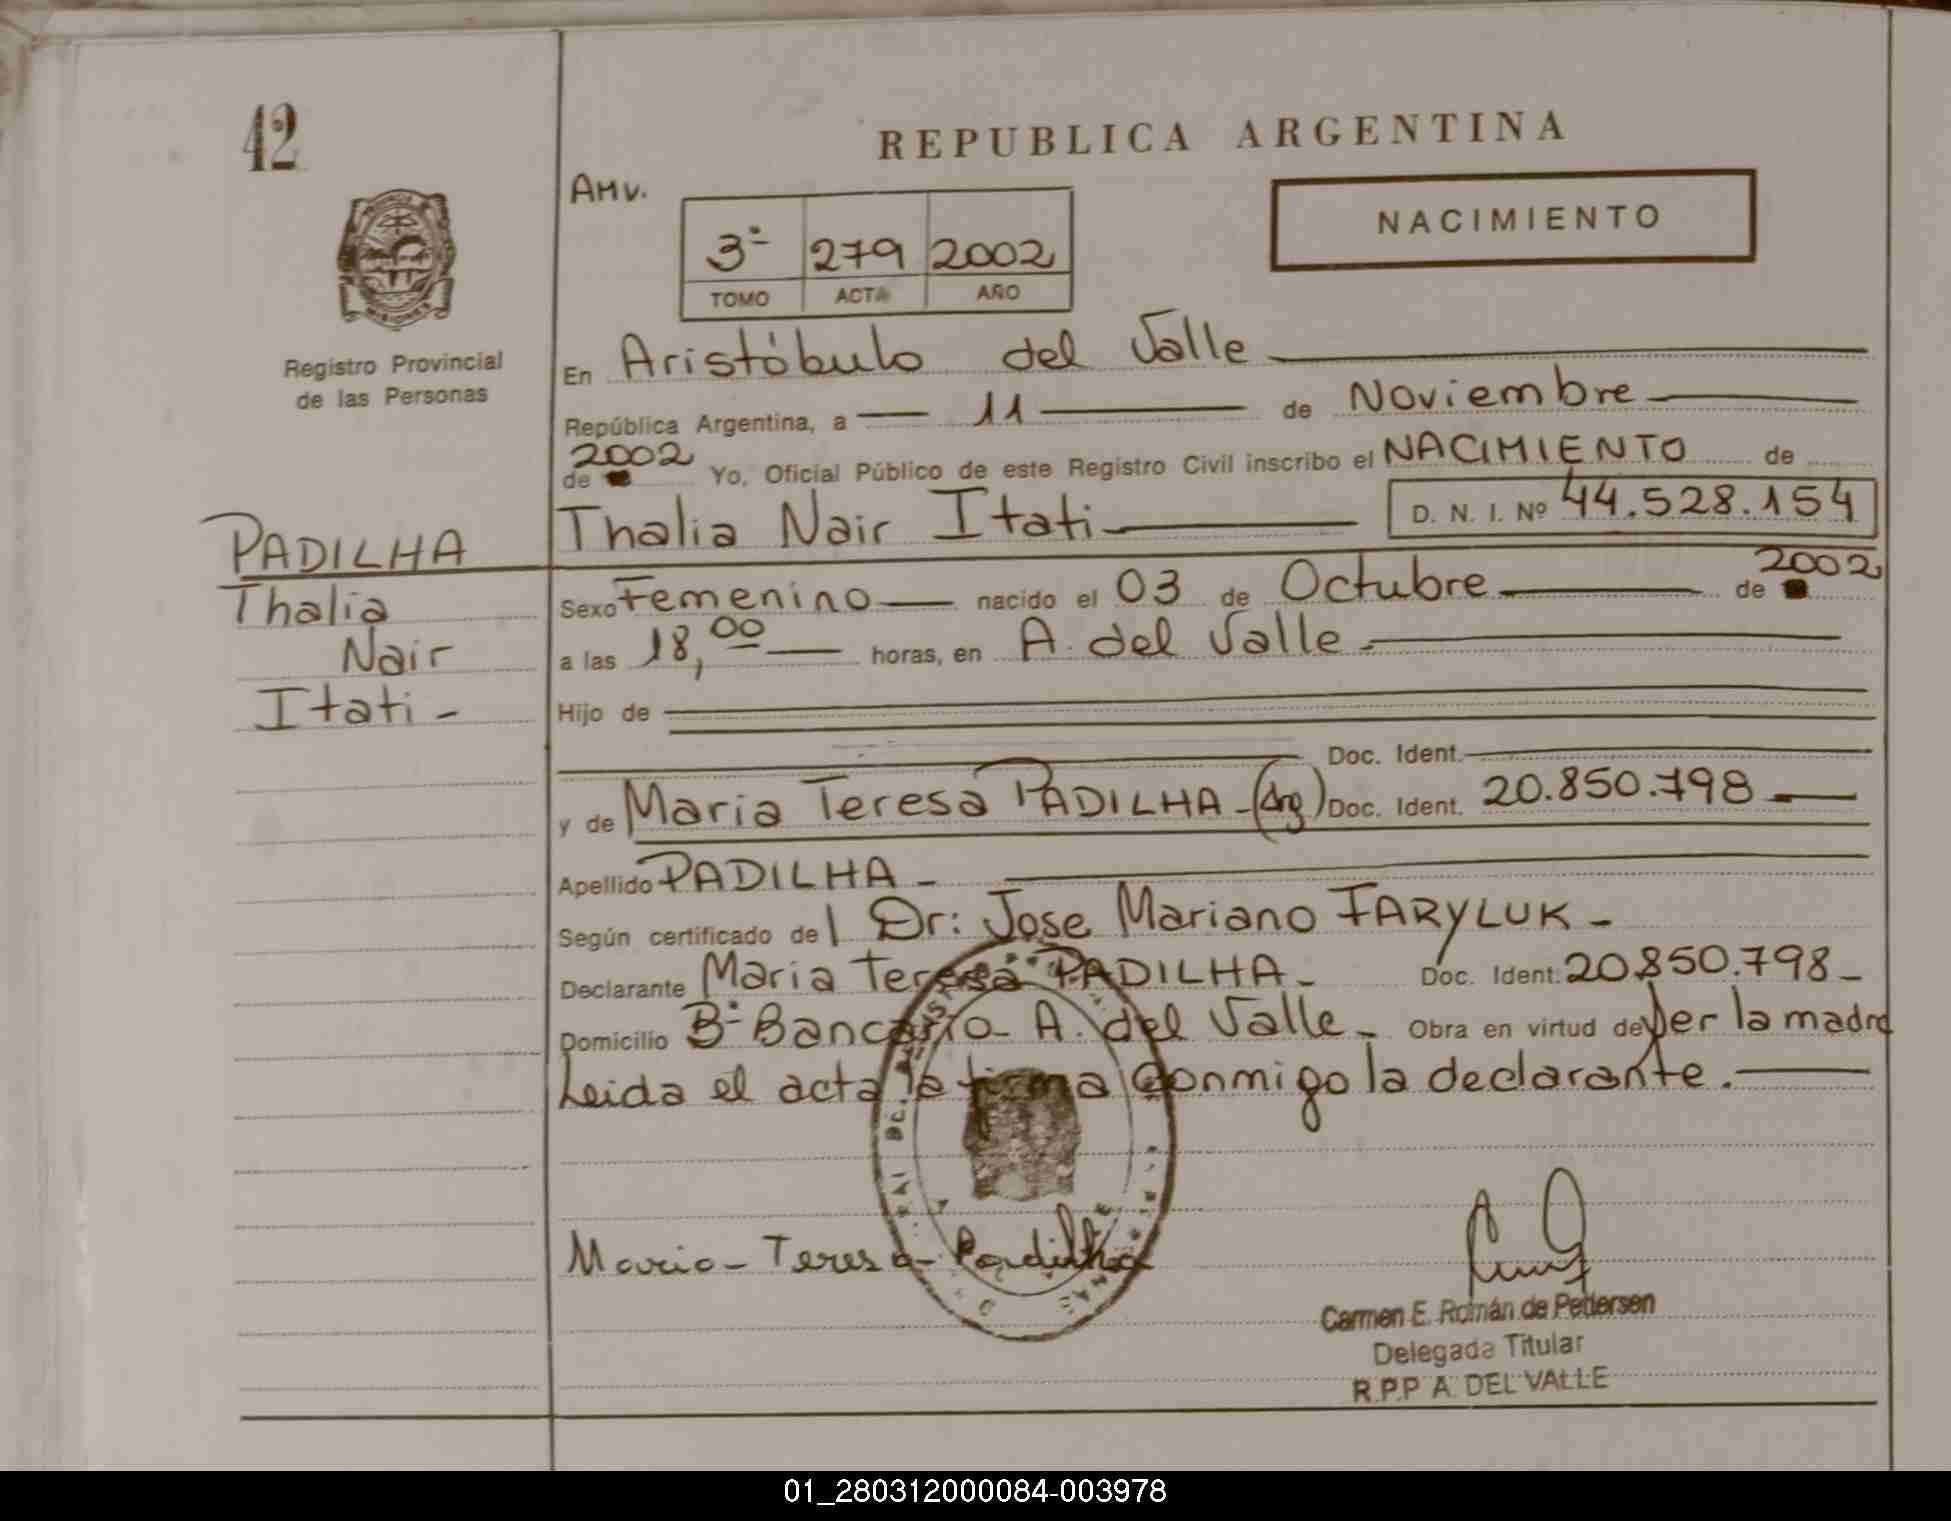 42
REPUBLICA ARGENTINA
AMV.
3º 279 2002
TOMO ACTA AÑO
NACIMIENTO
MISIONES
Registro Provincial
de las Personas
En Aristóbulo del Valle
República Argentina, a 11 de Noviembre
de 2002 Yo, Oficial Público de este Registro Civil inscribo el NACIMIENTO de
Thalia Nair Itati D. N. I. Nº 44.528.154
PADILHA
Thalia
Nair
Itati -
Sexo Femenino nacido el 03 de Octubre de 2002
a las 18,00 horas, en A. del Valle
Hijo de
Doc. Ident.
y de Maria Teresa PADILHA - (Arg) Doc. Ident. 20.850.798
Apellido PADILHA -
Según certificado del Dr: Jose Mariano FARYLUK -
Declarante Maria Teresa PADILHA - Doc. Ident: 20.850.798 -
Domicilio Bº Bancario - A. del Valle - Obra en virtud de Ser la madre
Leida el acta la firma conmigo la declarante.
Maria - Teresa - Padilha
Carmen E. Román de Pettersen
Delegada Titular
R.P.P A. DEL VALLE
01_280312000084-003978